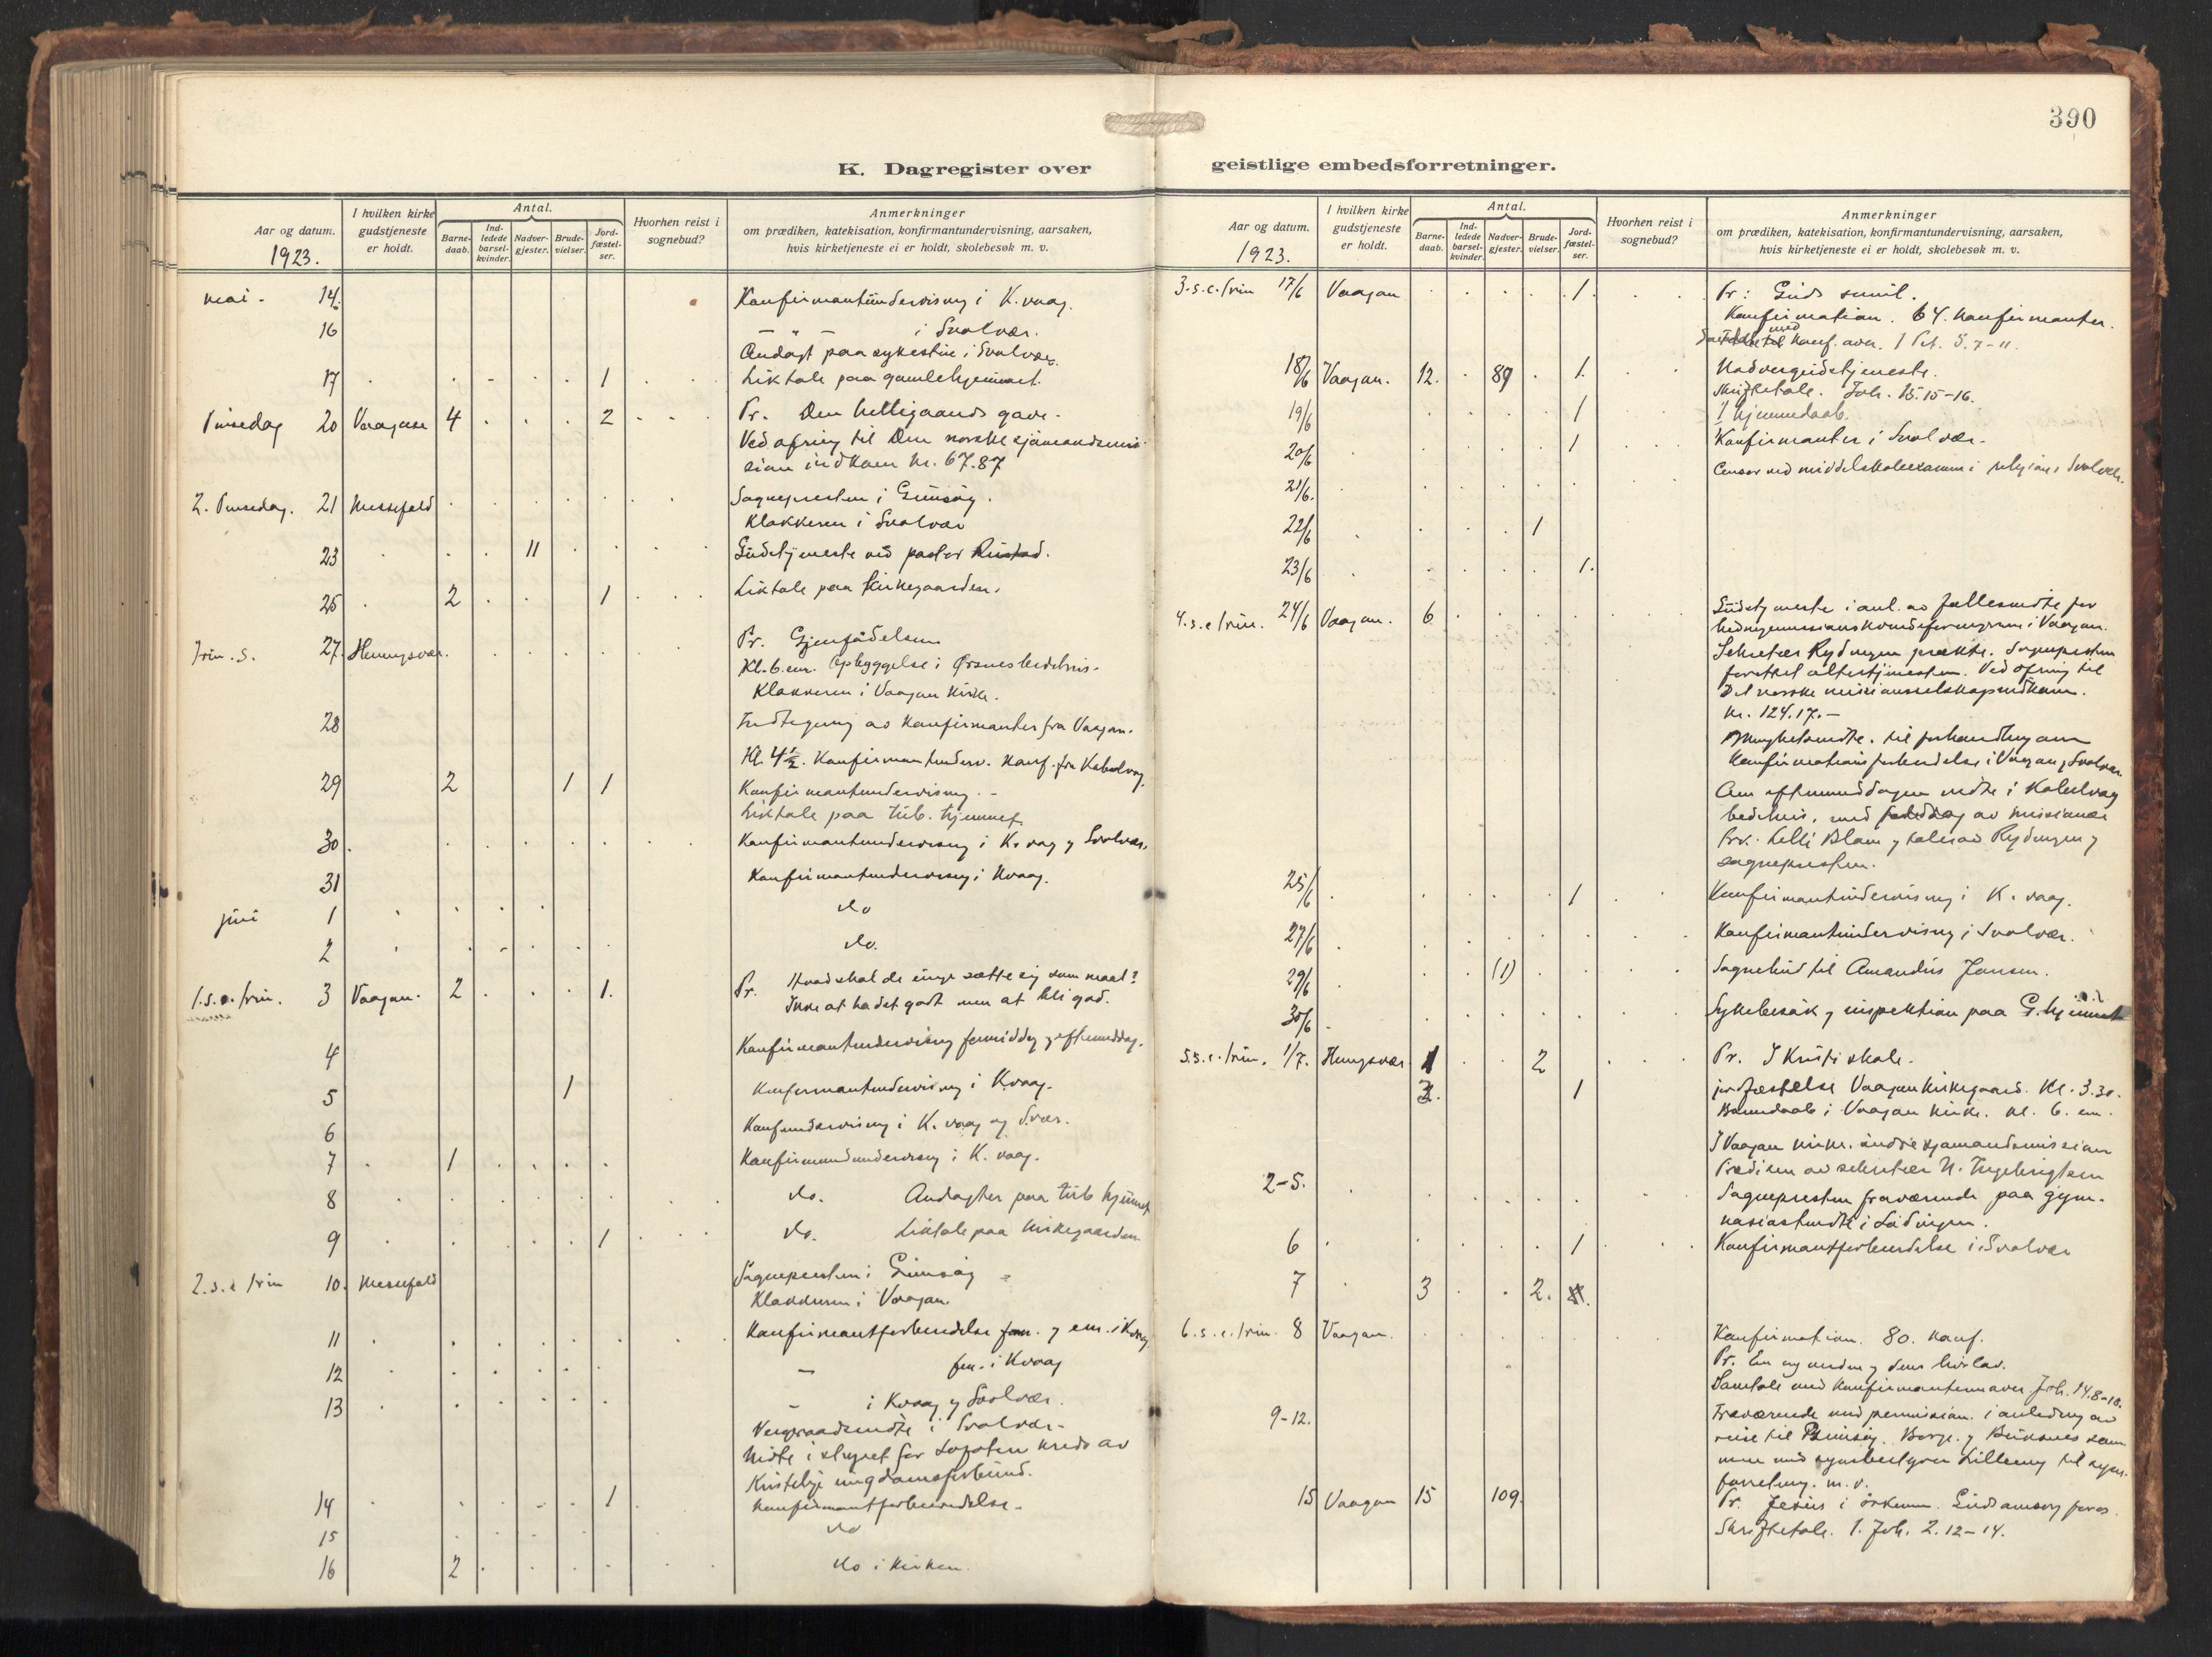 390
K. Dagregister over geistlige embedsforretninger.
Aar og datum. 1923.
I hvilken kirke gudstjeneste er holdt.
Antal.
Barnedaab.
Indledede barselkvinder.
Nadvergjester.
Brudevielser.
Jordfæstelser.
Hvorhen reist i sognebud?
Anmerkninger
om prædiken, katekisation, konfirmantundervisning, aarsaken,
hvis kirketjeneste ei er holdt, skolebesøk m. v.
mai - 14. Konfirmantundervisning i K.vaag.
16 — " — i Svolvær.
Andagt paa sykestue i Svolvær.
17 1 Liktale paa gamlehjemmet.
Pinsedag 20 Vaagan 4 2 Pr. Den helligaands gave.
Ved ofring til Den norske sjømandsmis-
sion indkom kr. 67.87
2. Pinsedag. 21 Messefald Sognepresten i Gimsøy.
Klokkeren i Svolvær
23 11 Gudstjeneste ved pastor Rustad.
25 2 1 Liktale paa kirkegaarden.
Trin. s. 27. Henningsvær. Pr. Gjenfødelsen
Kl. 6. em. Opbyggelse i Ørsnes bedehus.
Klokkeren i Vaagan kirke.
28 Indtegning av konfirmanter fra Vaagan.
Kl. 4½. Konfirmantunderv. konf. fra Kabelvaag.
29 2 1 1 Konfirmantundervisning.
Liktale paa tub. hjemmet.
30 Konfirmantundervisning i K.vaag og Svolvær.
31 Konfirmantundervisning i Kvaag.
juni 1 do
2 do.
1. s. e. trin. 3 Vaagan. 2 1. Pr. Hvad skal de unge sætte sig som maal?
Ikke at ha det godt men at bli god.
4 Konfirmantundervisning formiddag og eftermiddag.
5 1 Konfirmantundervisning i Kvaag.
6 Konfundervisning i K.vaag og Svær.
7 1 Konfirmandundervisning i K.vaag.
8 do. Andagter paa tub hjemmet
9 1 do. Liktale paa kirkegaarden
2. s. e. trin 10. Messefald Sognepresten i Gimsøy
Klokkeren i Vaagan.
11 Konfirmantforberedelse fm. og em. i Kvaag
12 — fm. i Kvaag
13 — i Kvaag og Svolvær.
Vergeraadsmøte i Svolvær.
Møte i styret for Lofoten kreds av
Kristelige ungdomsforbund.
14 1 Konfirmantforberedelse.
15 do
16 2 do i kirken.
Aar og datum. 1923.
I hvilken kirke gudstjeneste er holdt.
Antal.
Barnedaab.
Indledede barselkvinder.
Nadvergjester.
Brudevielser.
Jordfæstelser.
Hvorhen reist i sognebud?
Anmerkninger
om prædiken, katekisation, konfirmantundervisning, aarsaken,
hvis kirketjeneste ei er holdt, skolebesøk m. v.
3. s. e. trin 17/6 Vaagan 1. Pr: Guds smil.
Konfirmation. 64. konfirmanter.
med konf. over. 1 Pet. 5. 7-11.
18/6 Vaagan. 12. 89 1. Nadvergudstjeneste.
Skriftetale. Joh. 15. 15-16.
19/6 1 1 hjemmedaab.
20/6 1 Konfirmanter i Svolvær.
Censor ved middelskoleexamen i religion i Svolvær.
21/6.
22/6 1
23/6 1.
4. s. e. trin. 24/6 Vaagan. 6 Gudstjeneste i anl. av fællesmøte for
hedningemissionskvindeforeningerne i Vaagan.
Sekretær Rydningen prækte. Sognepresten
forettet altertjenesten. Ved ofring til
Det norske missionsselskap indkom.
kr. 124.17.—
Menighetsmøte. til forhandling om
konfirmationsforberedelse i Vaagan og Svolvær
Om eftermiddagen møte i Kabelvaag
bedehus, med foredrag av missionær
Frk. Lelli Blom og taler av Rydningen og
sognepresten.
25/6 1 Konfirmantundervisning i K.vaag.
27/6 Konfirmantundervisning i Svolvær.
29/6 (1) Sognebud til Amandus Jansen.
30/6 Sykebesøk og inspektion paa G. hjemmet
5. s. e. trin. 1/7. Henningsvær 1 2 Pr. I Kristi skole.
3. 1 jordfæstelse Vaagan kirkegaard. Kl. 3.30.
Barnedaab i Vaagan kirke. kl. 6. em.
I Vaagan kirke. indre sjømandsmission
Prædiken av sekretær N. Ingebrigtsen
2-5. Sognepresten fraværende paa gym-
nasiastmøte i Lødingen.
6 1 Konfirmantforberedelse i Svolvær
7 3 2.
6. s. e. trin. 8 Vaagan. Konfirmation. 80. konf.
Pr. En ny verden og dens livslov.
Samtale med konfirmantene over Joh. 14. 8-10.
9-12. Fraværende med permission. i anledning av
reise til Gimsøy. Borge. og Buksnes sam-
men med
forretning. m. v.
15 Vaagan 15 109. Pr. Jesus i ørkenen. Guds omsorg for os.
Skriftetale. 1. Joh. 2. 12-14.